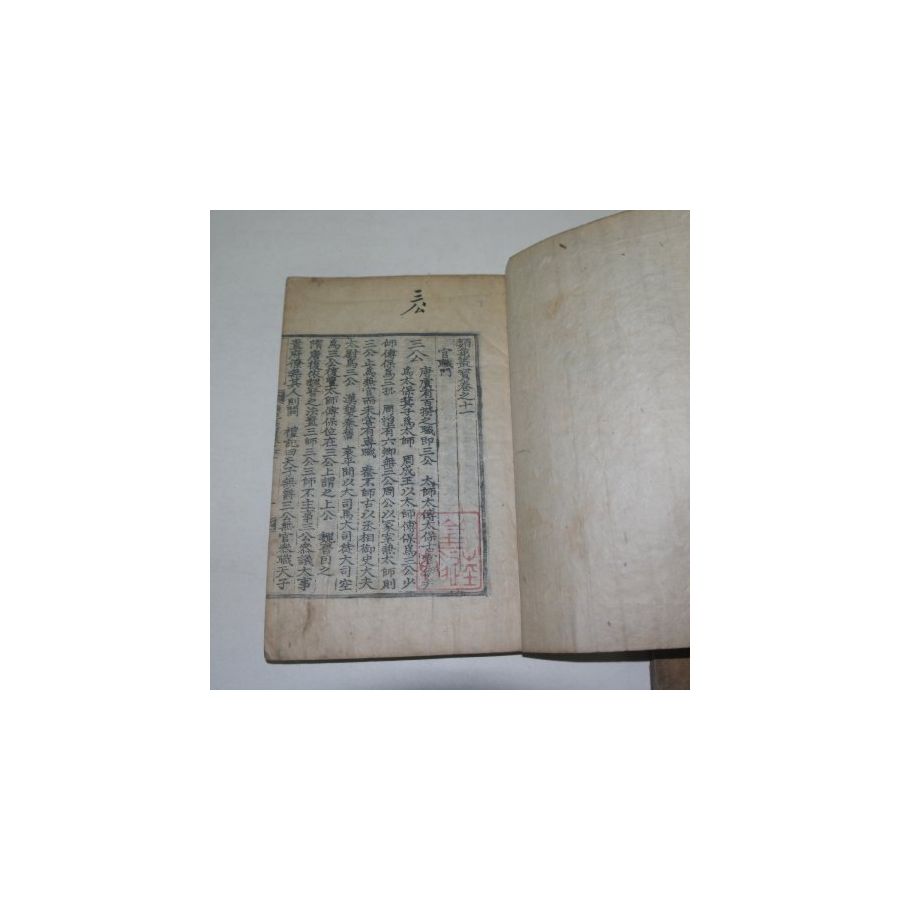 三公
類苑叢寶卷之十一
官職門
三公 唐虞有百揆之職即三公 太師太傅太保
爲太保箕子爲太師 周成王以太師傅保爲三公少
師傅保爲三孤 周禮有六卿無三公周公以冢宰兼太師則
三公止爲兼官而未嘗有專職 秦不師古以丞相御史大夫
太尉爲三公 漢襲秦舊 哀平間以大司馬大司徒大司空
爲三公復置太師傅保位在三公上謂之上公 魏晉因之
隋唐復依魏晉之法置三師三公三師不主事三公參議大事
置府僚無其人則闕 禮記曰天子無爵三公無官參職天子